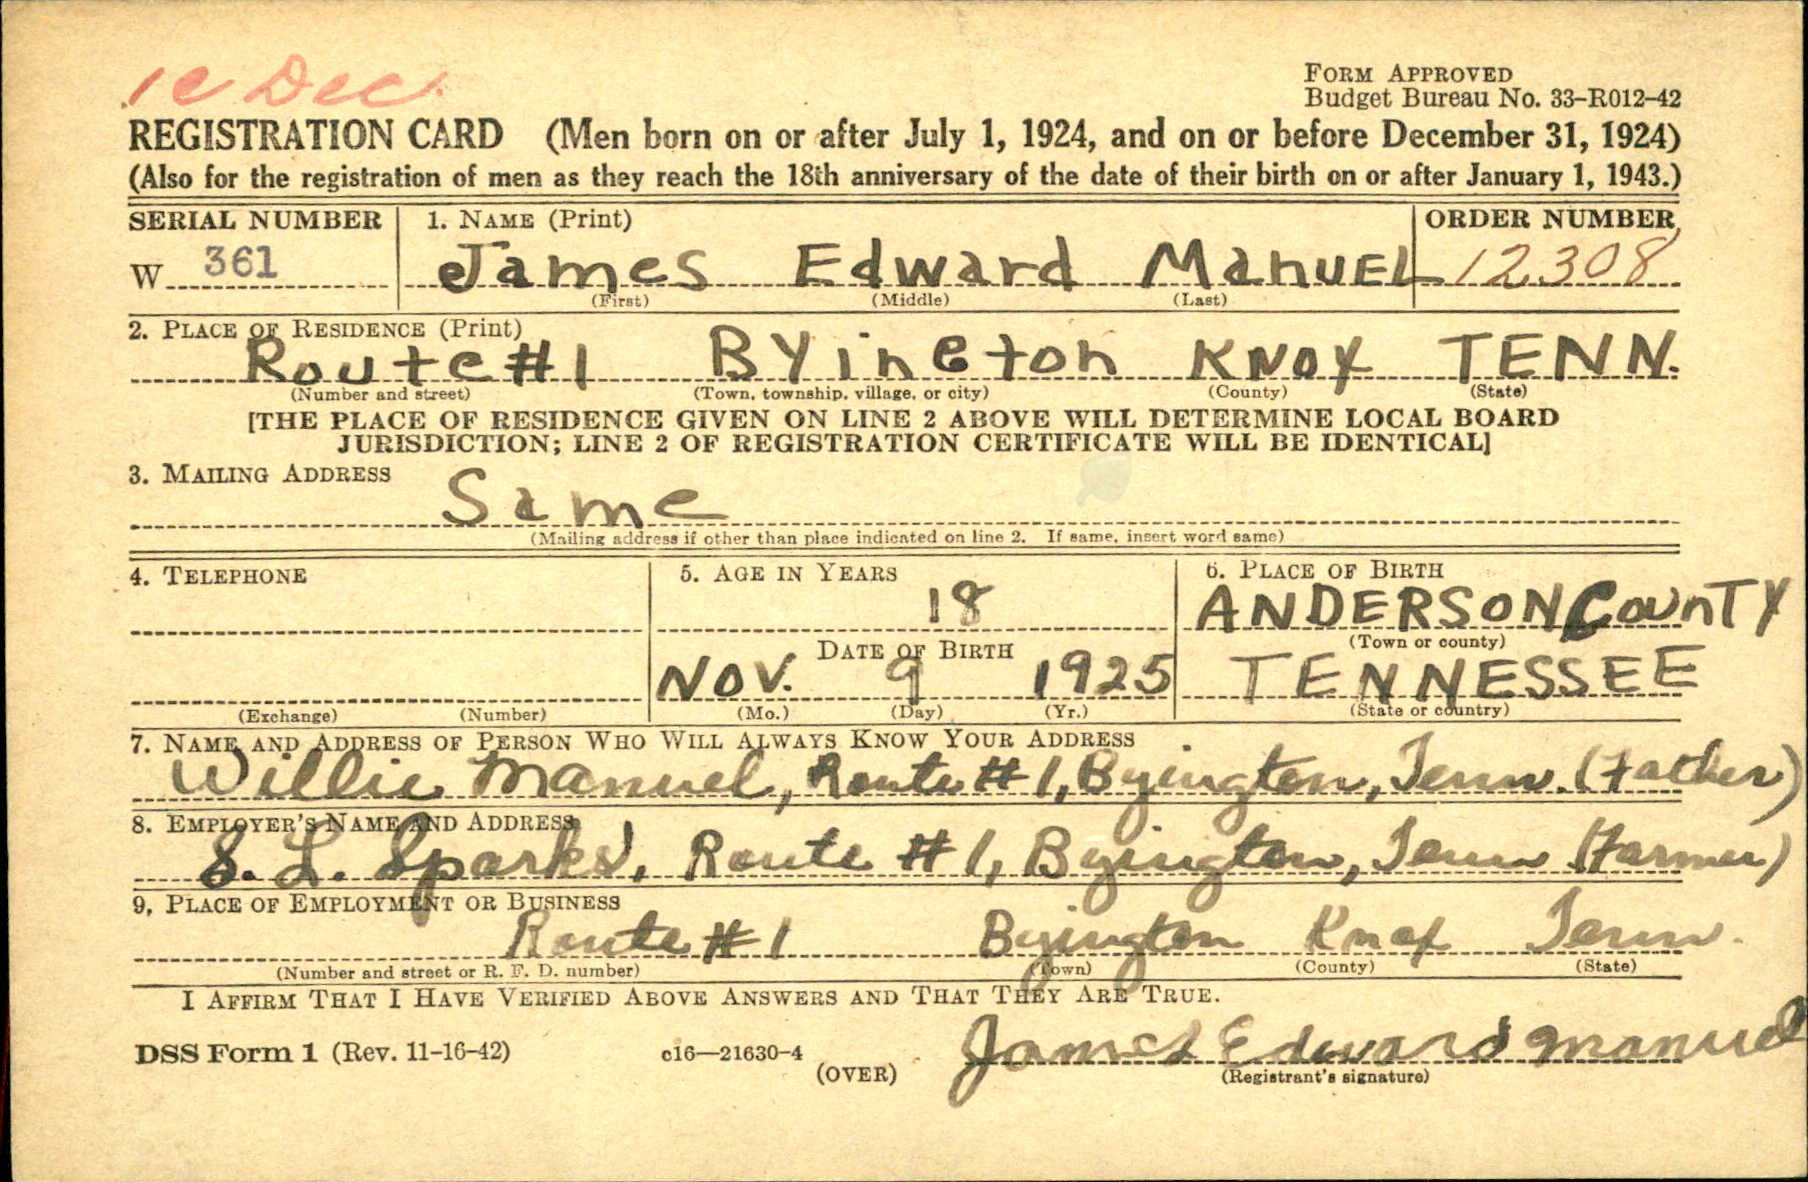 Dec.
FORM APPROVED
Budget Bureau No. 33-R012-42
REGISTRATION CARD (Men born on or after July 1, 1924, and on or before December 31, 1924)
(Also for the registration of men as they reach the 18th anniversary of the date of their birth on or after January 1, 1943.)
SERIAL NUMBER 1. NAME (Print) ORDER NUMBER
W 361 James Edward Manuel 12308
(First) (Middle) (Last)
2. PLACE OF RESIDENCE (Print)
Route #1 Byington KNOX TENN.
(Number and street) (Town, township, village, or city) (County) (State)
[THE PLACE OF RESIDENCE GIVEN ON LINE 2 ABOVE WILL DETERMINE LOCAL BOARD
JURISDICTION; LINE 2 OF REGISTRATION CERTIFICATE WILL BE IDENTICAL]
3. MAILING ADDRESS
Same
(Mailing address if other than place indicated on line 2. If same, insert word same)
4. TELEPHONE 5. AGE IN YEARS 6. PLACE OF BIRTH
18 ANDERSON County
(Town or county)
DATE OF BIRTH
NOV. 9 1925 TENNESSEE
(Exchange) (Number) (Mo.) (Day) (Yr.) (State or country)
7. NAME AND ADDRESS OF PERSON WHO WILL ALWAYS KNOW YOUR ADDRESS
Willie Manuel, Route #1, Byington, Tenn. (Father)
8. EMPLOYER'S NAME AND ADDRESS
S. L. Sparks, Route #1, Byington, Tenn (Farmer)
9. PLACE OF EMPLOYMENT OR BUSINESS
Route #1 Byington Knox Tenn.
(Number and street or R. F. D. number) (Town) (County) (State)
I AFFIRM THAT I HAVE VERIFIED ABOVE ANSWERS AND THAT THEY ARE TRUE.
DSS Form 1 (Rev. 11-16-42) c16—21630-4 James Edward Manuel
(OVER) (Registrant's signature)